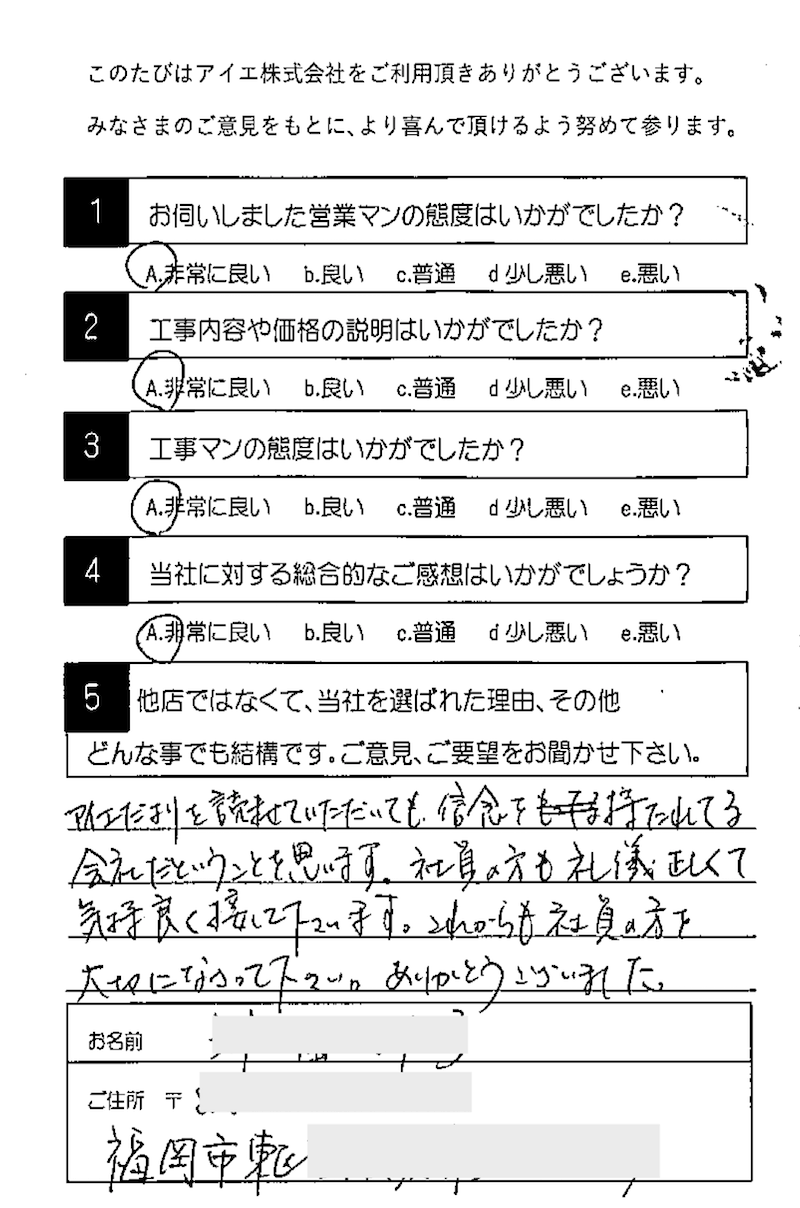 このたびはアイエ株式会社をご利用頂きありがとうございます。
みなさまのご意見をもとに、より喜んで頂けるよう努めて参ります。
1 お伺いしました営業マンの態度はいかがでしたか？
A.非常に良い b.良い c.普通 d 少し悪い e.悪い
2 工事内容や価格の説明はいかがでしたか？
A.非常に良い b.良い c.普通 d 少し悪い e.悪い
3 工事マンの態度はいかがでしたか？
A.非常に良い b.良い c.普通 d 少し悪い e.悪い
4 当社に対する総合的なご感想はいかがでしょうか？
A.非常に良い b.良い c.普通 d 少し悪い e.悪い
5 他店ではなくて、当社を選ばれた理由、その他
どんな事でも結構です。ご意見、ご要望をお聞かせ下さい。
アイエだよりを読ませていただいても、信念を持たれてる
会社だということを思います。社員の方も礼儀正しくて
気持良く接して下さいます。これからも社員の方を
大切になさって下さい。ありがとうございました。
お名前
ご住所 〒
福岡市東区